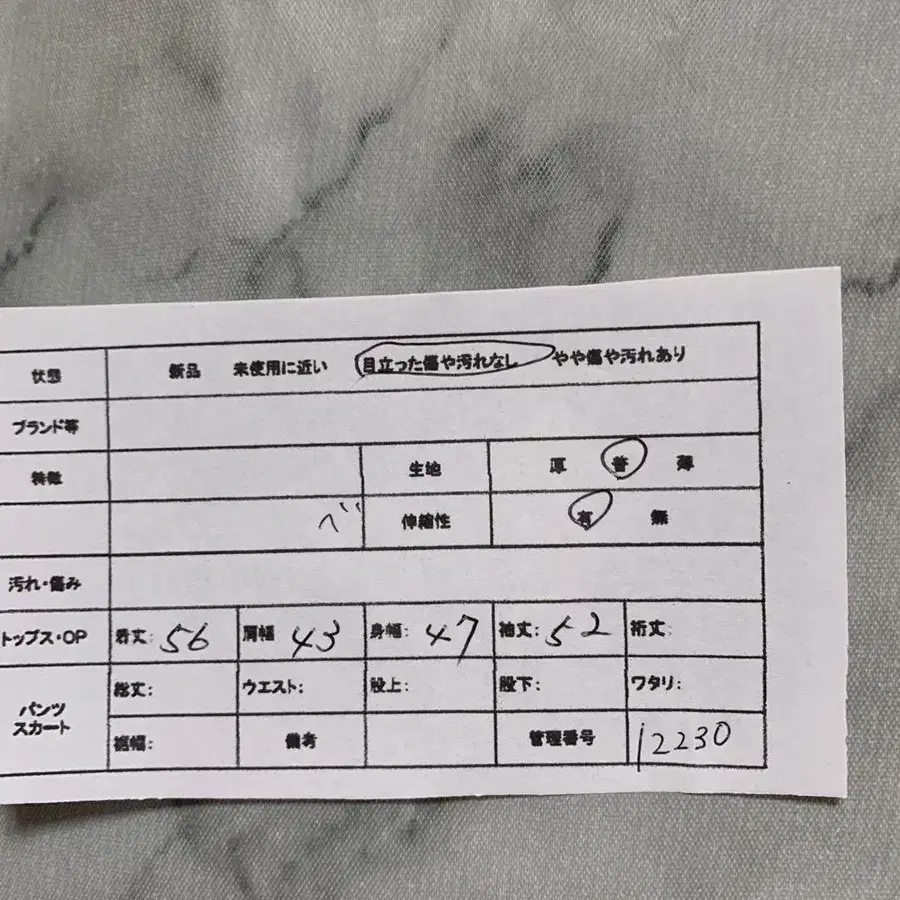 状態 新品 未使用に近い 目立った傷や汚れなし やや傷や汚れあり
ブランド等
特徴 生地 厚 普 薄
べ 伸縮性 有 無
汚れ・傷み
トップス・OP 着丈: 56 肩幅 43 身幅: 47 袖丈: 52 裄丈:
パンツ スカート
総丈: ウエスト: 股上: 股下: ワタリ:
裾幅: 備考 管理番号 12230